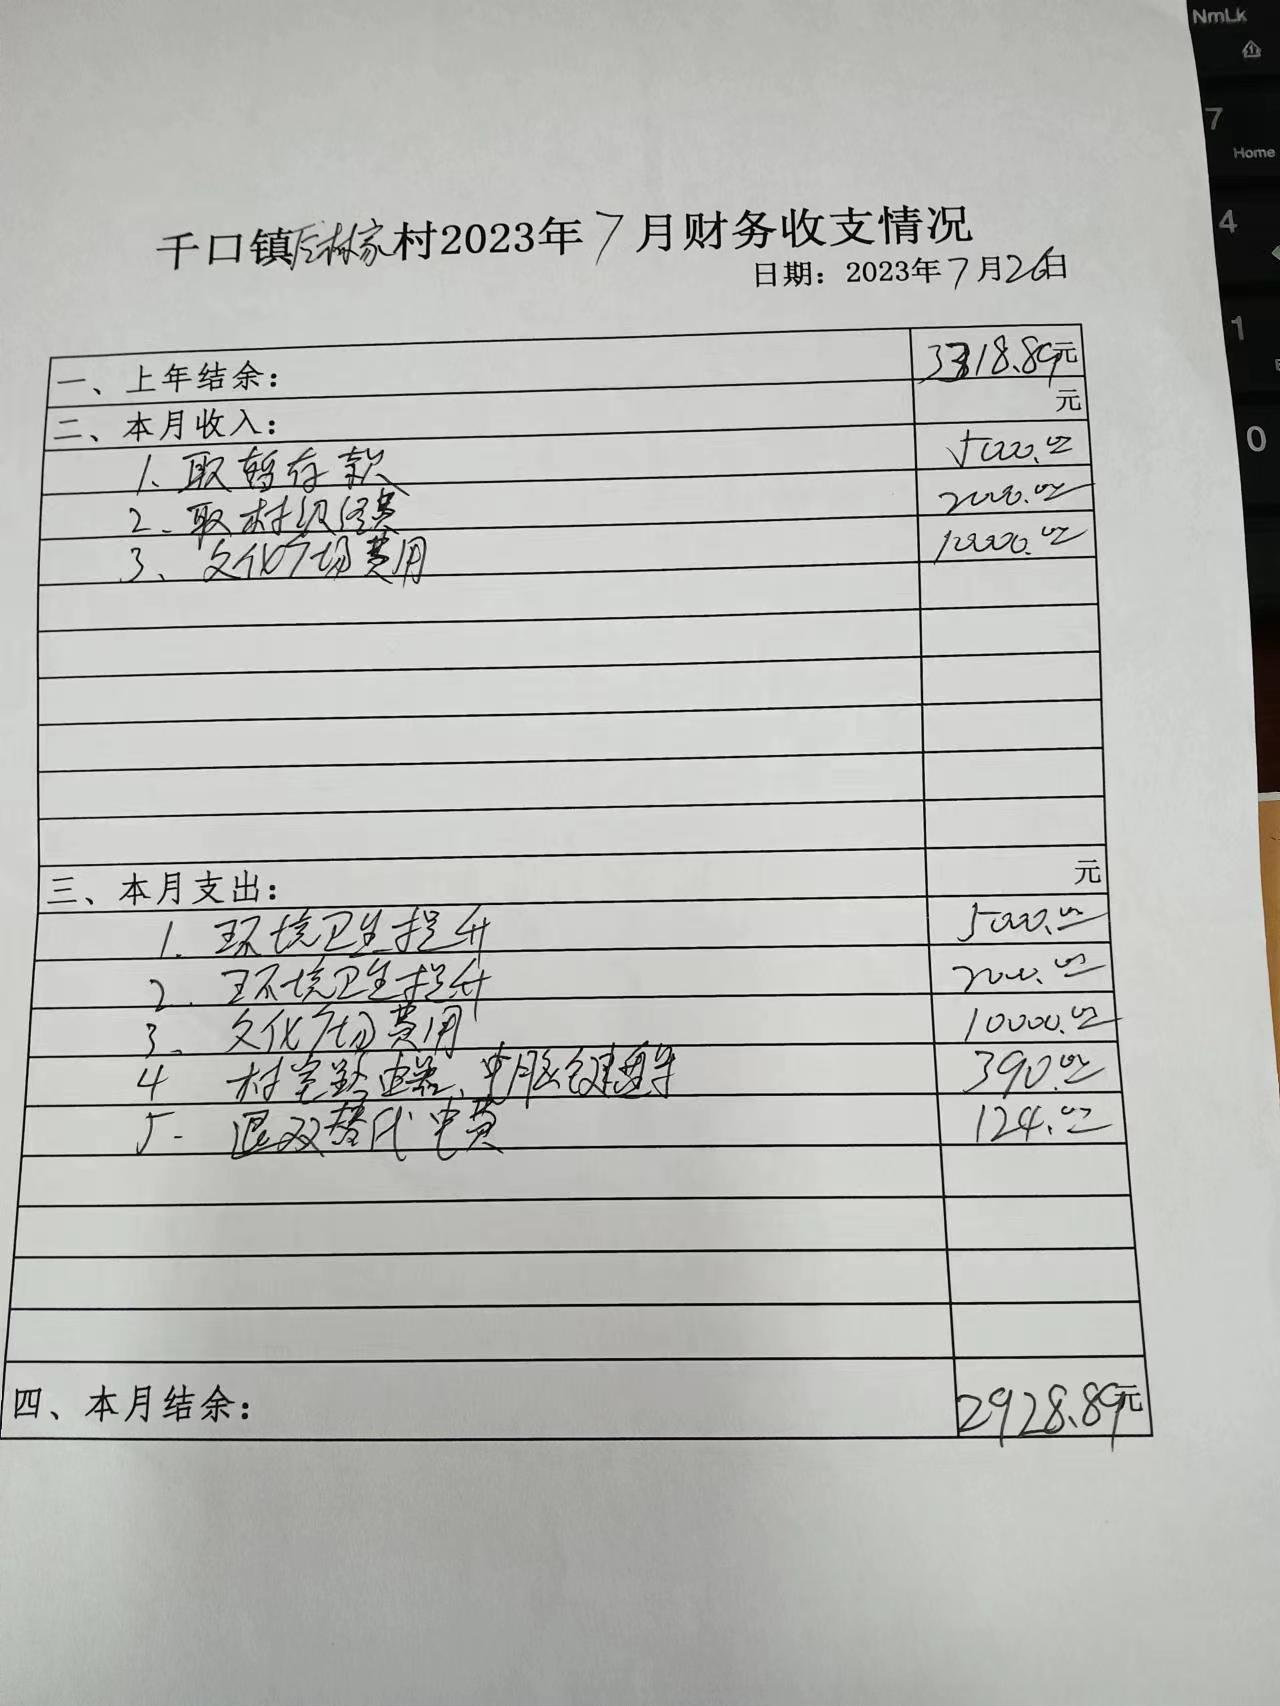 NmLk
7
Home
4
1
0
千口镇后林家村2023年7月财务收支情况
日期：2023年7月26日
一、上年结余： 3318.89元
二、本月收入： 元
1、取暂存款 5000.00
2、取村级经费 2000.00
3、文化广场费用 10000.00
三、本月支出： 元
1、环境卫生提升 5000.00
2、环境卫生提升 2000.00
3、文化广场费用 10000.00
4 村室路由器、 390.00
5- 退双替代电费 124.00
四、本月结余： 2928.89元